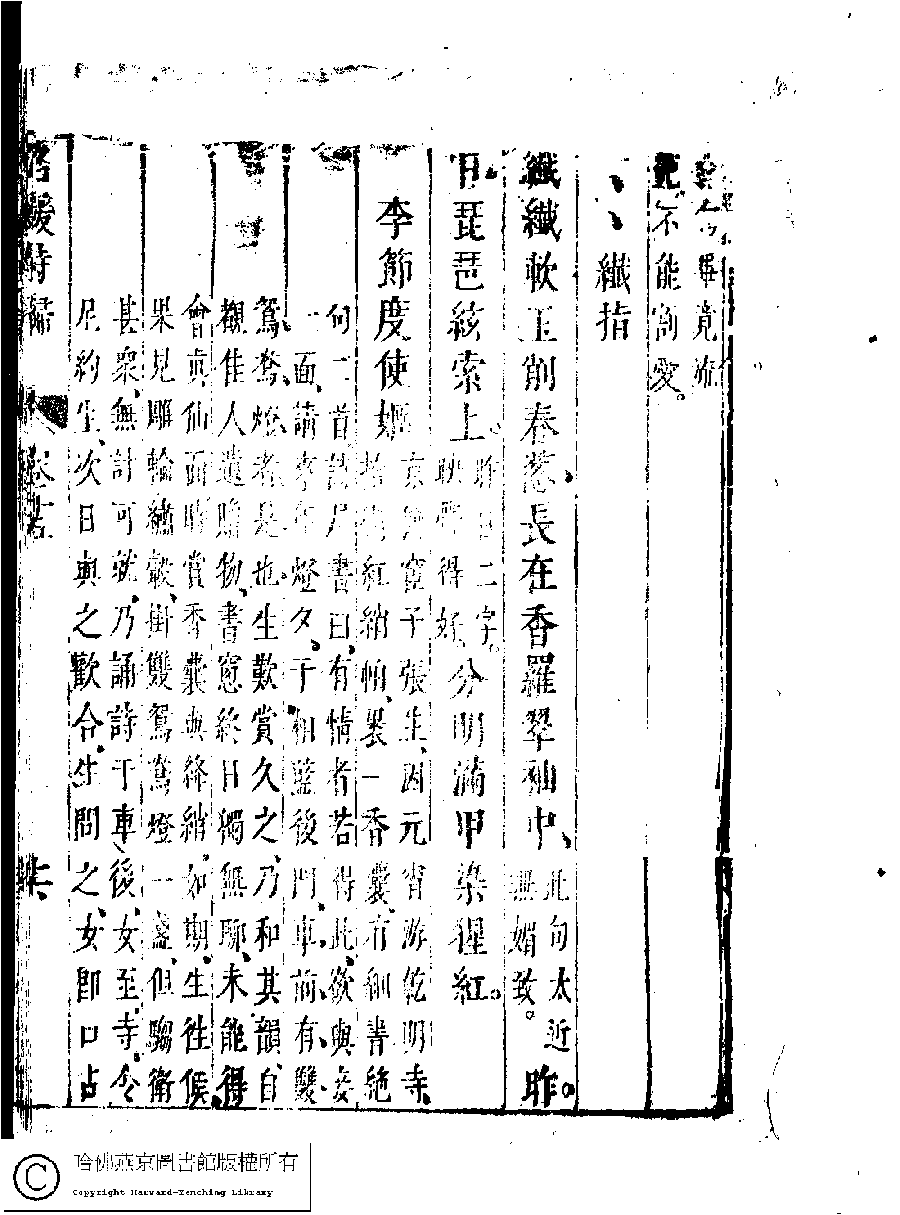 畢竟流
不能割愛。
、、纖指
纖纖軟玉削春葱、長在香羅翠袖中、此句太近
無媚致。昨
日琵琶絃索上。昨日二字。
映帶得好。分明滿甲染猩紅。
李節度使姬京師宦子張生、因元宵游乾明寺、
拾得紅綃帕、裹一香囊、有細書絶
句二首、詩尾書曰、有情者若得此、欲與妾
一面、請來年燈夕、于相藍後門、車前有雙
鴛鴦燈者是也、生歎賞久之、乃和其韻、自
觀佳人遺贈物、書窓終日獨無聊、未能得
會真仙面、時賞香囊與絳綃、如期、生往候、
果見雕輪繡轂、掛雙鴛鴦燈一盞、但騶衛
甚衆、無計可就、乃誦詩于車後、女至寺、令
尼約生、次日與之歡合、生問之、女卽口占
名媛詩歸
卷十
哈佛燕京圖書館版權所有
Copyright Harvard-Yenching Library